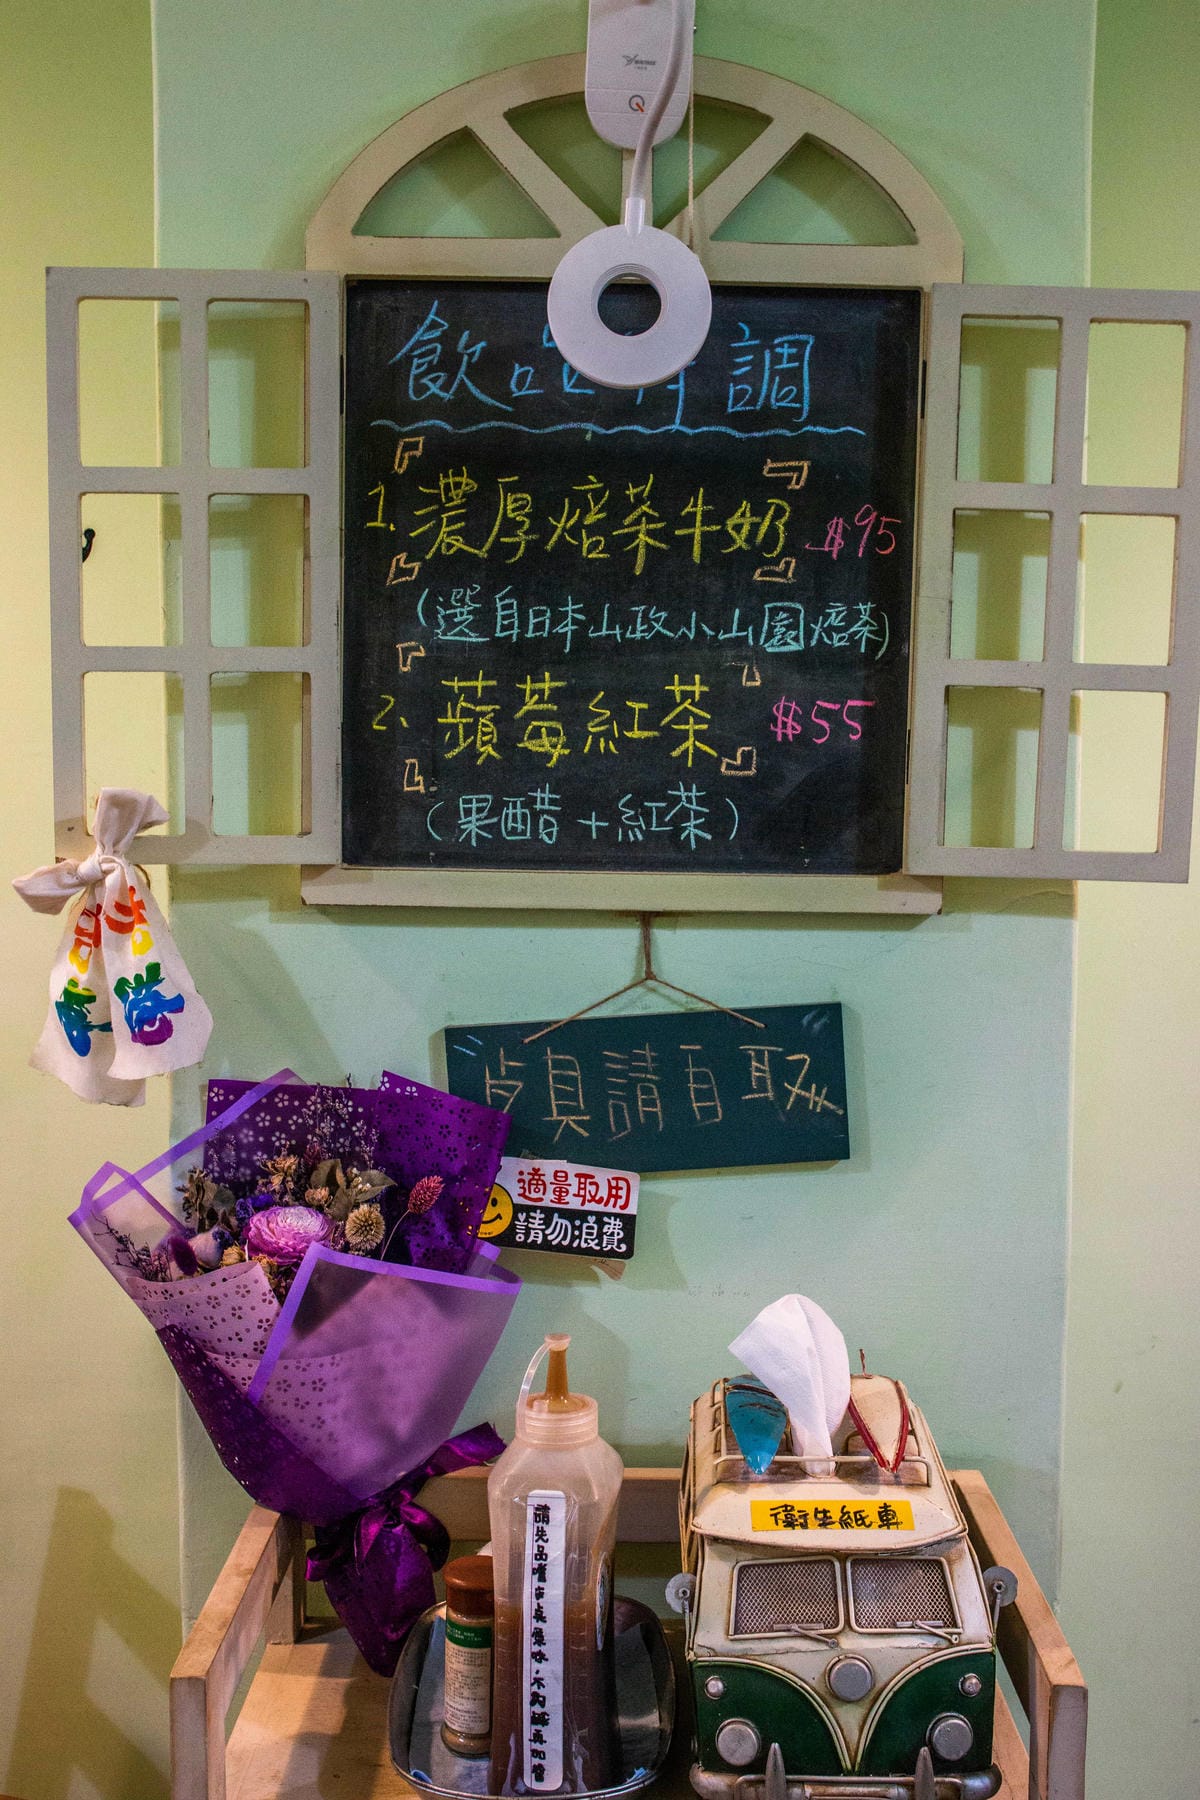 飲品特調
1.『濃厚焙茶牛奶』 $95
(選自日本山政小山園焙茶)
2、『蘋莓紅茶』 $55
(果醋+紅茶)
歺具請自取
適量取用
請勿浪費
請先品嚐歺奌原味,不夠鹹再加醬
衛生紙車